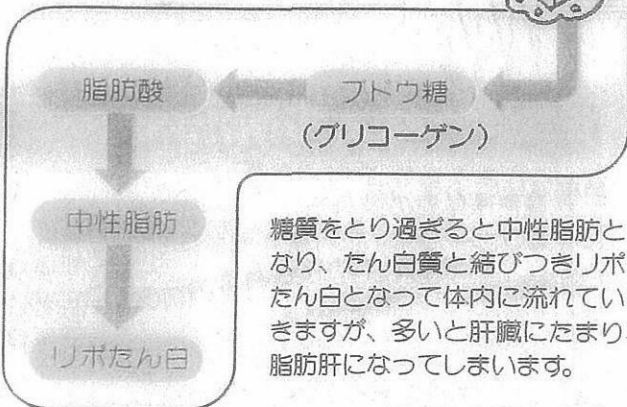 脂肪酸 ブドウ糖
(グリコーゲン)
中性脂肪
リポたん白
糖質をとり過ぎると中性脂肪と
なり、たん白質と結びつきリポ
たん白となって体内に流れてい
きますが、多いと肝臓にたまり、
脂肪肝になってしまいます。